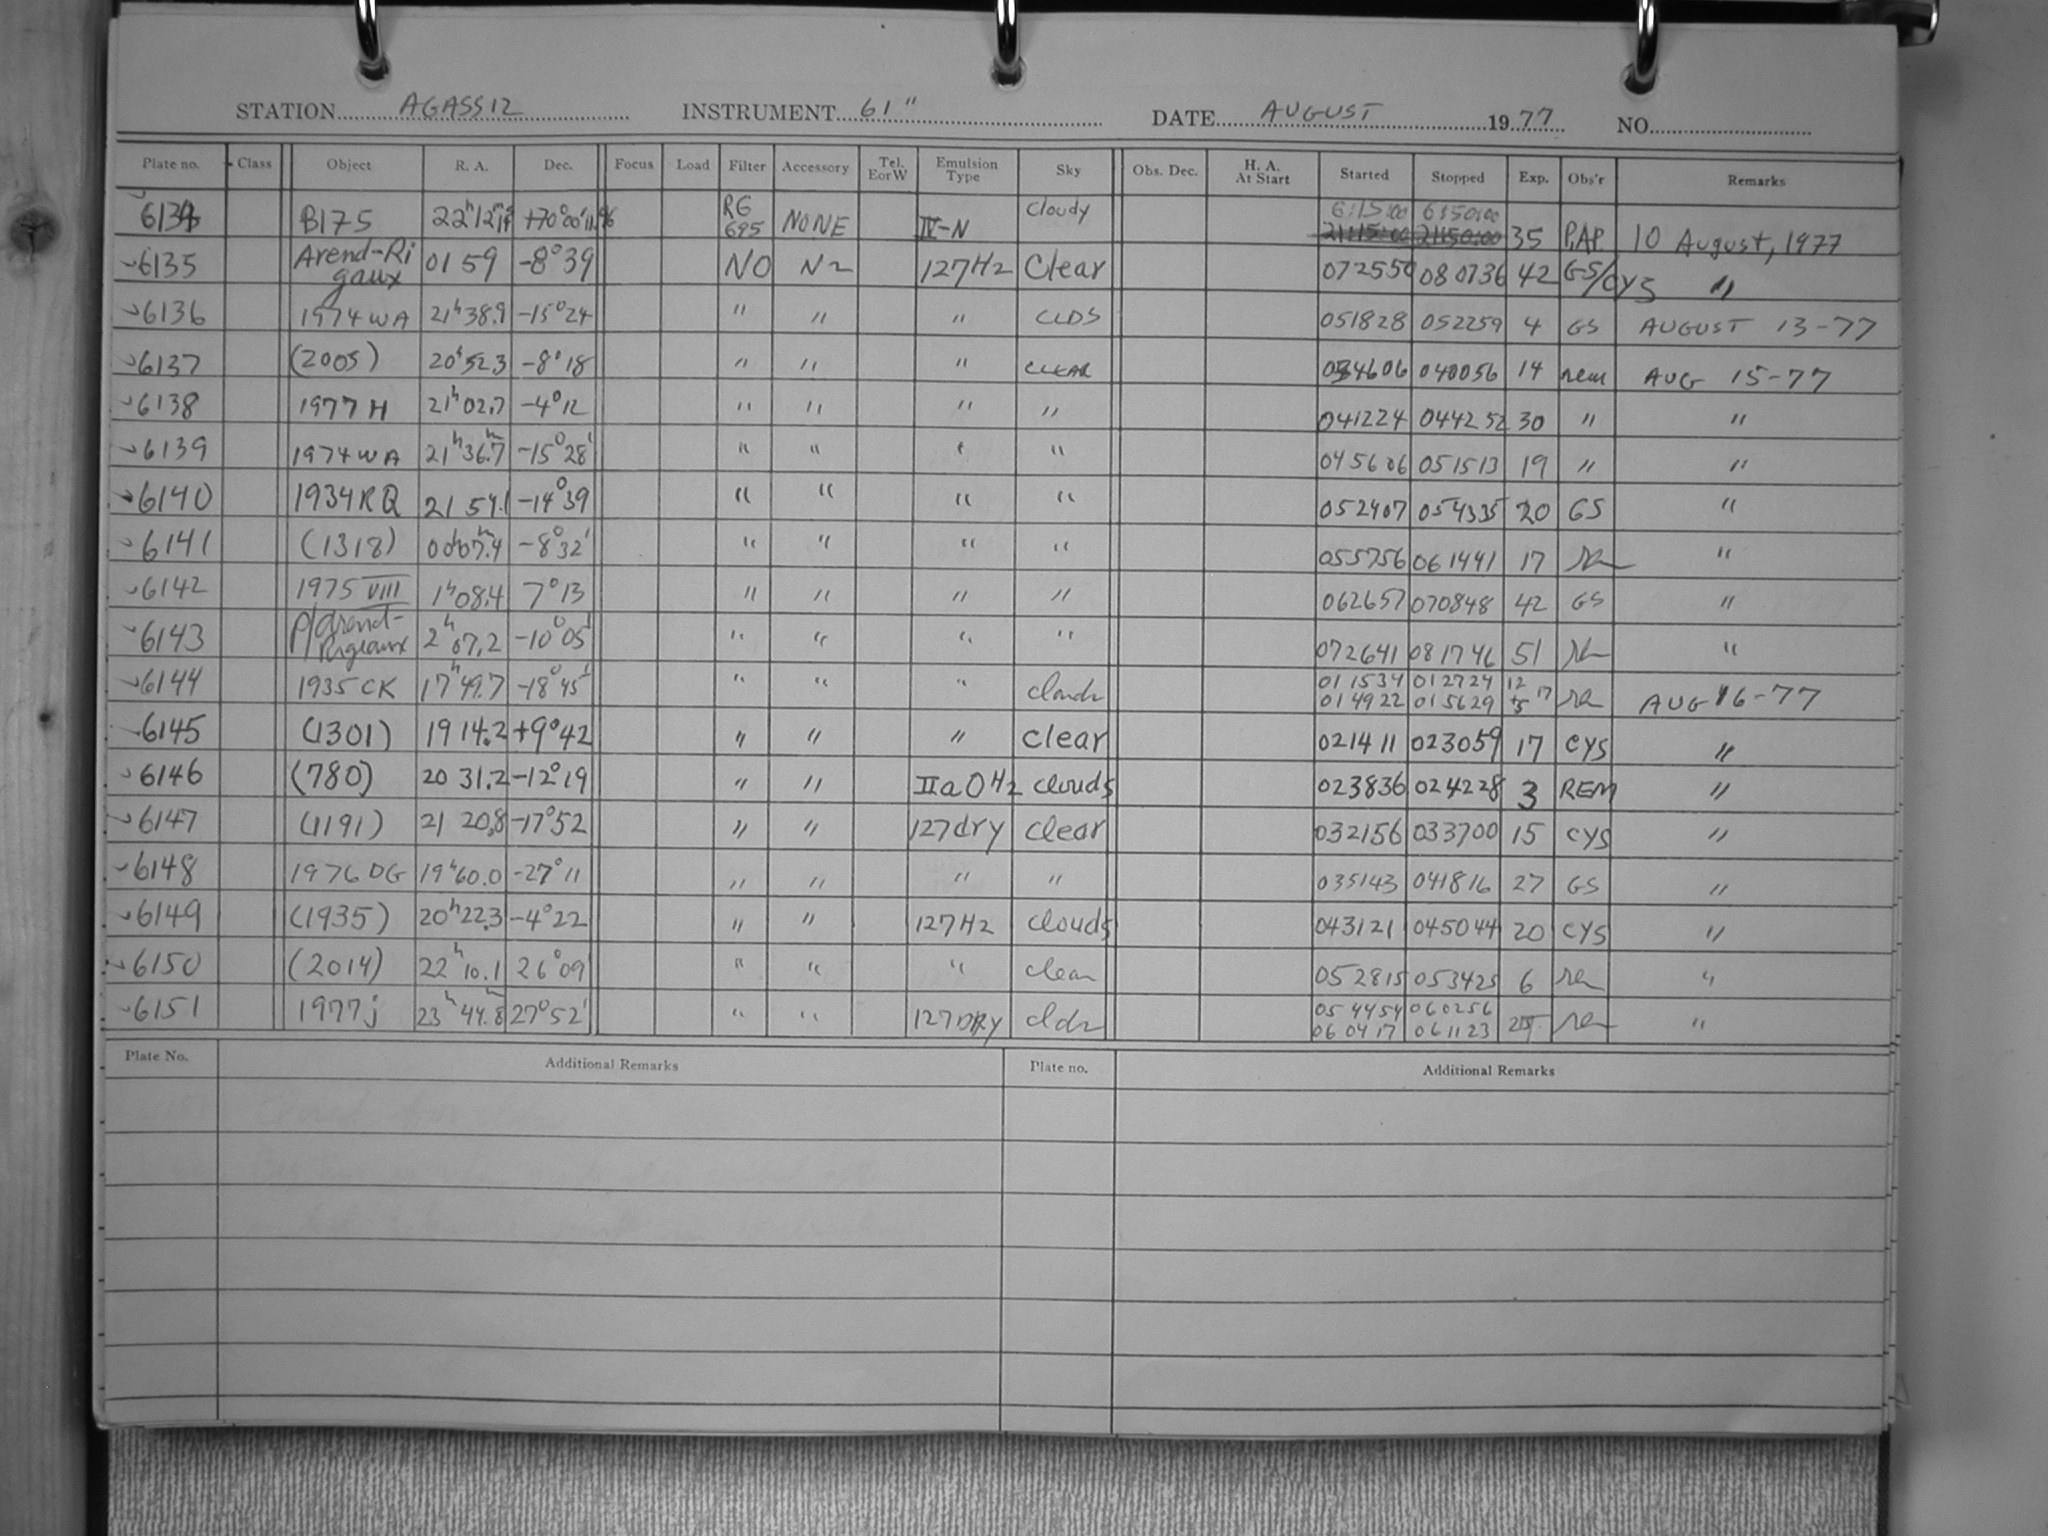 STATION AGASSIZ INSTRUMENT 61" DATE AUGUST 1977 NO.
Plate no. Class Object R. A. Dec. Focus Load Filter Accessory Tel. E or W Emulsion Type Sky Obs. Dec. H. A. At Start Started Stopped Exp. Obs'r Remarks
6134 B175 RG 695 NONE IV-N Cloudy 6:15:00 6:50:00 35 PAP 10 August, 1977
6135 Arend-Rigaux 01 59 -8°39 NO N2 127H2 Clear 072550 080736 42 GS/CYS "
6136 1974 WA 21h38.9 -15°24 " " " CLDS 051828 052259 4 GS AUGUST 13-77
6137 (2005) 20h52.3 -8°18 " " " CLEAR 034606 040056 14 rem AUG 15-77
6138 1977 H 21h02.7 -4°12 " " " " 041224 044252 30 " "
6139 1974 WA 21h36.7 -15°28' " " " " 045606 051513 19 " "
6140 1934RQ 21 54.1 -14°39 " " " " 052407 054335 20 GS "
6141 (1318) 00h07.4 -8°32' " " " " 055756 061441 17 "
6142 1975 VIII 1h08.4 7°13 " " " " 062657 070848 42 GS "
6143 P/Arend-Rigeaux 2h07.2 -10°05' " " " " 072641 081746 51 "
6144 1935 CK 17h49.7 -18°45' " " " clouds 011534 012724 12 014922 015629 +5 17 AUG 16-77
6145 (1301) 19 14.2 +9°42 " " " clear 021411 023059 17 CYS "
6146 (780) 20 31.2 -12°19 " " IIaO H2 clouds 023836 024228 3 REM "
6147 (1191) 21 20.8 -17°52 " " 127dry clear 032156 033700 15 CYS "
6148 1976 DG 19h60.0 -27°11 " " " " 035143 041816 27 GS "
6149 (1935) 20h22.3 -4°22 " " 127H2 clouds 043121 045044 20 CYS "
6150 (2014) 22h10.1 26°09' " " " clear 052815 053425 6 "
6151 1977j 23h44.8 27°52' " " 127DRY cldz 054454 060256 060417 061123 "
Plate No. Additional Remarks Plate no. Additional Remarks